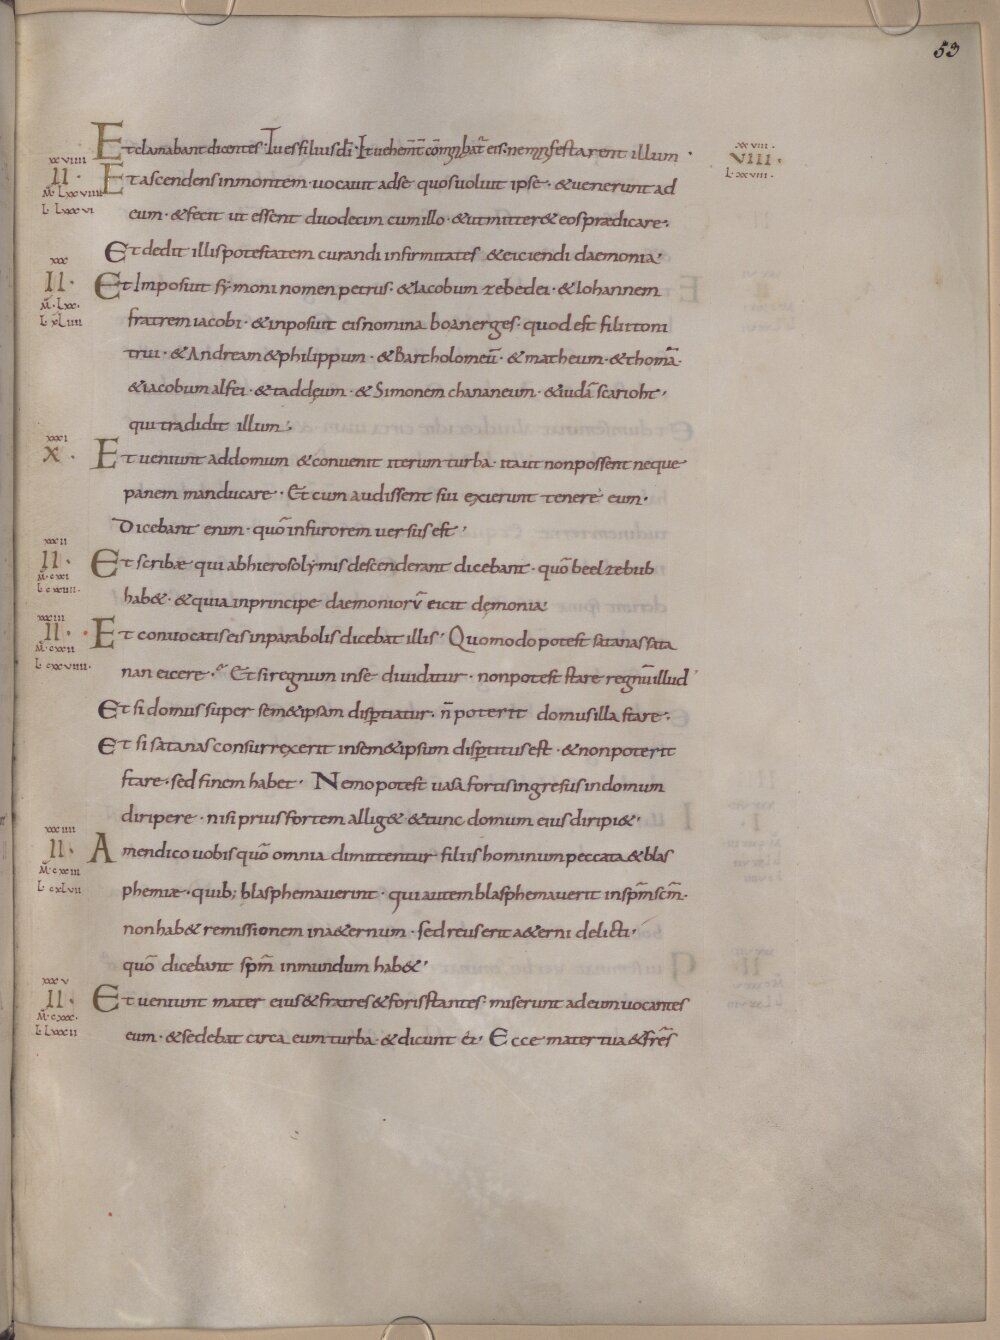 53
Et clamabant dicentes · Tu es filius dī · Et uehem̄t cōminabat̄ eis · ne manifestarent illum ·
xxviii
VIII ·
L · xxviii ·
xxviiii
II ·
M̄ · Lxxviiii
L · Lxxxvi
Et ascendens in montem · uocauit ad se quos uoluit ipse · & uenerunt ad
eum · & fecit ut essent duodecim cum illo · & ut mitter& eos prædicare ·
Et dedit illis potestatem curandi infirmitates & eiciendi daemonia ·
xxx
II ·
M̄ · Lxx ·
L · xLiiii
Et Imposuit symoni nomen petrus · & Iacobum zebedei · & Iohannem
fratrem iacobi · & inposuit eis nomina boanerges · quod est filii toni
trui · & Andream & philippum · & Bartholomeū · & matheum · & thomā ·
& iacobum alfei · & taddęum · & Simonem chananeum · & iudā scarioht ·
qui tradidit illum ·
xxxi
X ·
Et ueniunt ad domum & conuenit iterum turba · ita ut non possent neque
panem manducare · Et cum audissent sui exierunt tenere eum ·
Dicebant enim · quō in furorem uersus est ·
xxxii
II ·
M̄ · cxxi
L · cxxiii ·
Et scribæ qui ab hierosolymis descenderant dicebant · quō beelzebub
hab& · & quia in principe daemoniorū eicit dęmonia
xxxiii
II ·
M̄ · cxxii
L · cxxviiii ·
Et conuocatis eis in parabolis dicebat illis · Quomodo potest satanas sata
nan eicere · Et si regnum in se diuidatur · non potest stare regnū illud
Et si domus super sem&ipsam disptiatur · n̄ poterit domus illa stare ·
Et si satanas consurrexerit in sem&ipsum disptitus est · & non poterit
stare · sed finem habet · Nemo potest uasa fortis ingresus in domum
diripere · nisi prius fortem allig& & tunc domum eius diripi& ·
xxxiiii
II ·
M̄ · cxxiii
L · cxLvii
Amen dico uobis quō omnia dimittentur filiis hominum peccata & blas
phemiæ · quib; blasphemauerint · qui autem blasphemauerit in spm̄ scm̄ ·
non hab& remissionem in a&ernum · sed reus erit a&erni delicti ·
quō dicebant spm̄ inmundum hab& ·
xxxv
II ·
M̄ · cxxx ·
L · Lxxxii
Et ueniunt mater eius & fratres & foris stantes · miserunt ad eum uocantes
eum · & sedebat circa eum turba · & dicunt ei · Ecce mater tua & frēs